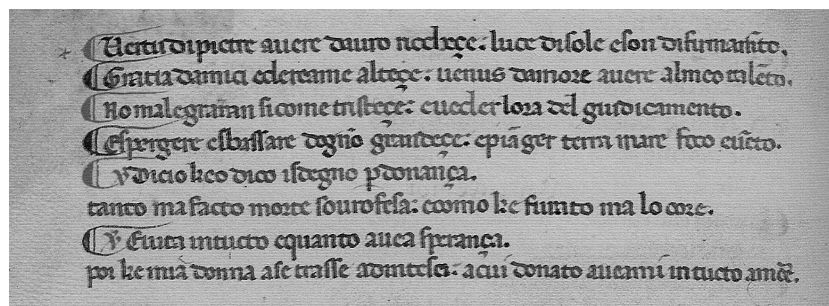 Uertu di pietre auere dauro richeçe: luce di sole eson di firmamēto,
Gratia damici edereame alteçe: uenus damore auere almeo talēto,
No malegraran sicome tristeçe: eueder lora del giudicamento.
Espergere esbassare dognō grandeçe: epiāger terra mare foco euēto.
Dicio keo dico isdegno ꝑdonança.
tanto ma facto morte sourofesa: como ke furato ma lo core.
Euita intucto equanto auea sperança.
poi ke mia donna ase trasse adintesa: acui donato aueami in tucto amore.